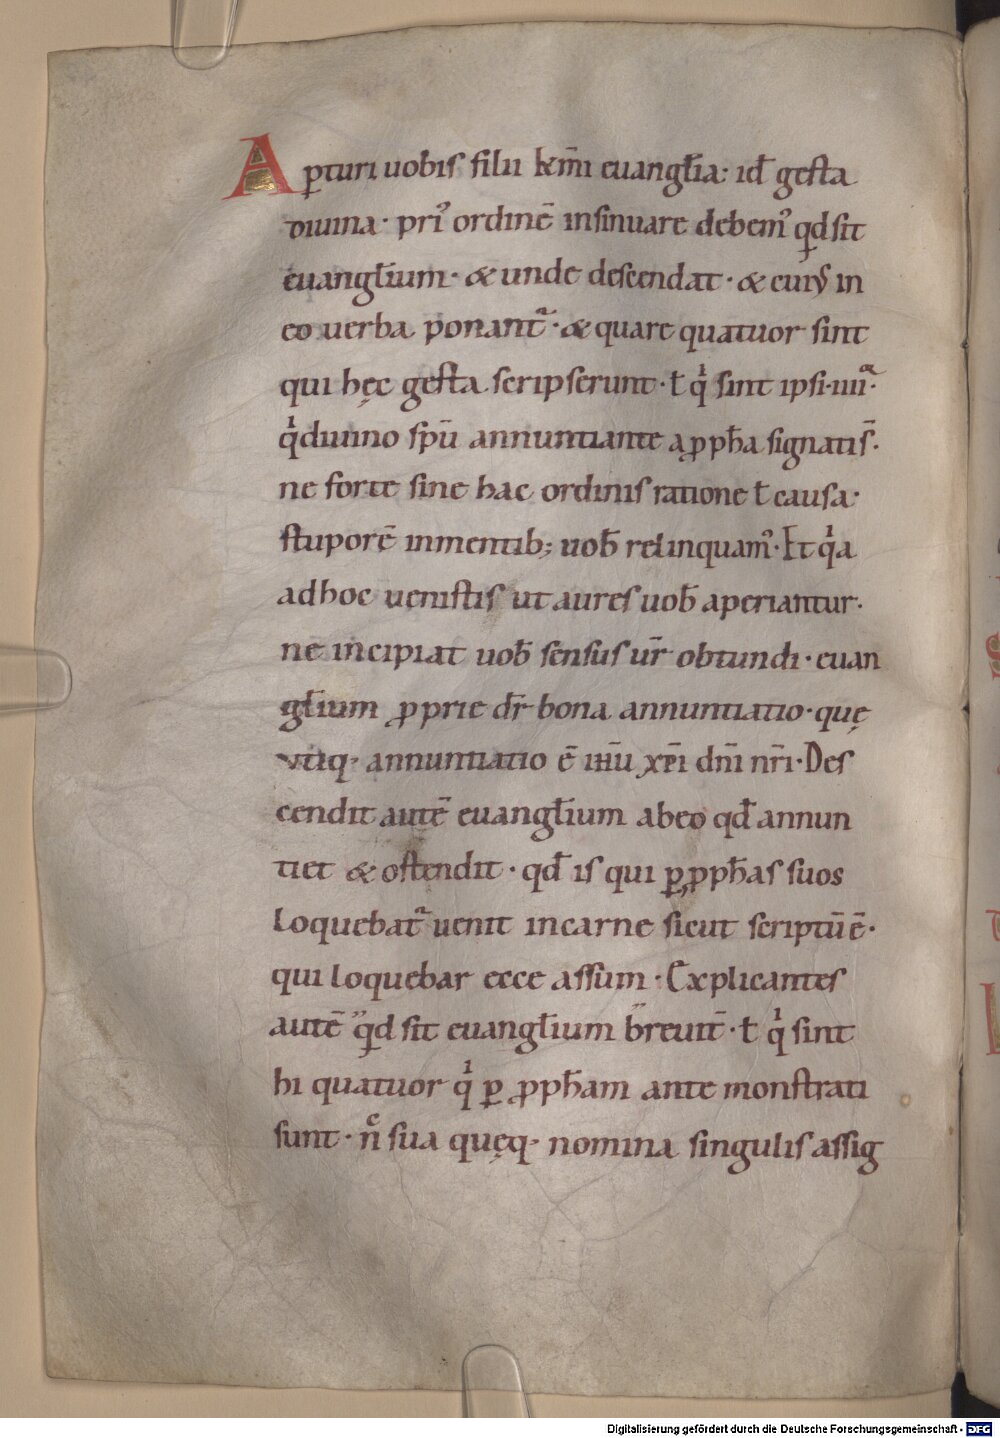 Apturi uobis filii kr̄mi euangl̄ia: id̄ gesta
diuina· pri᾽ ordinē insinuare debem᾽ qd sit
euangl̄ium· & unde descendat· & cuiꝰ in
eo uerba ponant᷑· & quare quatuor sint
qui hęc gesta scripserunt· ł qͥ sint ipsi·iiii·
qͥ diuino sp̄u annuntiante a ꝓph̄a signatis̄·
ne forte sine hac ordinis ratione ł causa·
stuporē in mentib; uob̄ relinquam᾽· Et qͥa
ad hoc uenistis ut aures uob̄ aperiantur·
ne incipiat uob̄ sensus ur̄ obtundi· euan
gl̄ium ꝓprie dr̄ bona annuntiatio· quę
utiq· annuntiatio ē ihū xp̄i dn̄i nr̄i· Des
cendit autē euangl̄ium ab eo qd̄ annun
tiet & ostendit· qd̄ is qui ꝑ ꝓph̄as suos
loquebat᷑ uenit in carne sicut scriptū ē·
qui loquebar ecce assum· Explicantes
autē qd sit euangl̄ium breuit̄· ł qͥ sint
hi quatuor qͥ ꝑ ꝓph̄am ante monstrati
sunt· nͨ sua quęq· nomina singulis assig
Digitalisierung gefördert durch die Deutsche Forschungsgemeinschaft - DFG